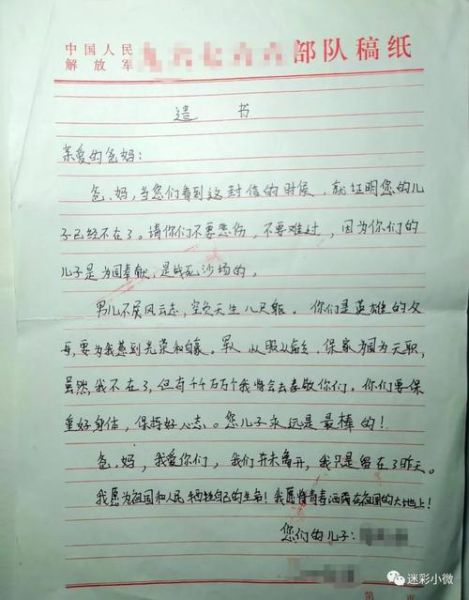 中国人民
解放军
部队稿纸
遗书
亲爱的爸妈：
爸、妈，当您们看到这封信的时候，就证明您的儿
子已经不在了。请你们不要悲伤，不要难过，因为你们的
儿子是为国奉献，是战死沙场的。
男儿不展风云志，空负天生八尺躯。你们是英雄的父
母，要为我感到光荣和自豪。军人以服从 保家为国为天职，
虽然我不在了，但有千千万万个我将会去孝敬你们。你们要保
重好身体，保持好心态。您儿子永远是最棒的！
爸、妈，我爱你们，我们并未离开，我只是留在了昨天。
我愿为祖国和人民牺牲自己的生命！我愿将青春洒满在祖国的大地上！
您们的儿子：
第 页
迷彩小微